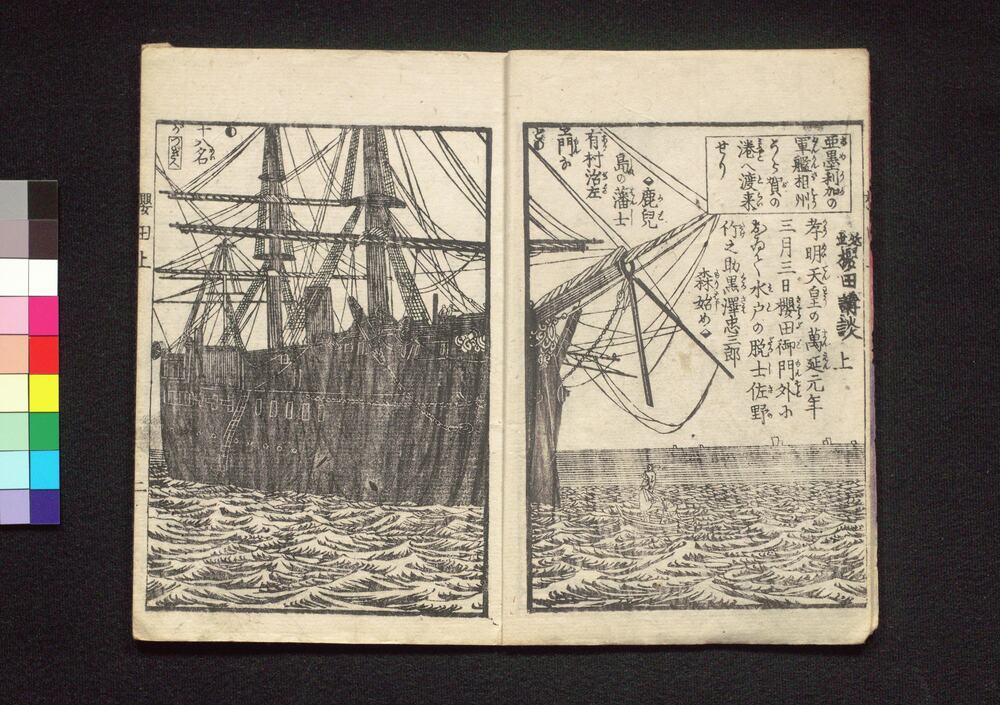 櫻田講談 上
亜墨利加の
軍艦相州
うら賀の
港へ渡来
せり
孝明天皇の萬延元年
三月三日櫻田御門外に
おゐて水戸の脱士佐野
竹之助黒澤忠三郎
森始め
鹿児
島の藩士
有村治左
ヱ門等
十八名
つぎへ
櫻田上
二